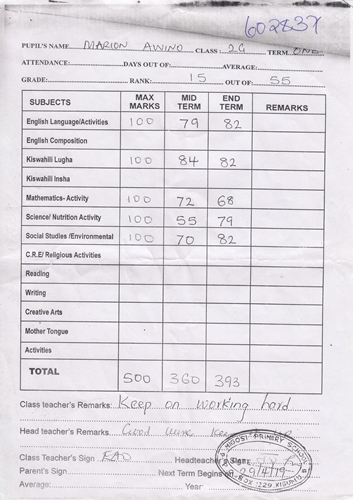 602837
PUPIL'S NAME MARION AWINO CLASS: 2G TERM ONE
ATTENDANCE: DAYS OUT OF: AVERAGE:
GRADE: RANK: 15 OUT OF: 55
SUBJECTS MAX MARKS MID TERM END TERM REMARKS
English Language/Activities 100 79 82
English Composition
Kiswahili Lugha 100 84 82
Kiswahili Insha
Mathematics- Activity 100 72 68
Science/ Nutrition Activity 100 55 79
Social Studies /Environmental 100 70 82
C.R.E/ Religious Activities
Reading
Writing
Creative Arts
Mother Tongue
Activities
TOTAL 500 360 393
Class teacher's Remarks: Keep on working hard
Head teacher's Remarks: Good
Class Teacher's Sign Headteacher's
Parent's Sign Next Term Begins on 29/4/19
Average: Year
PRIMARY